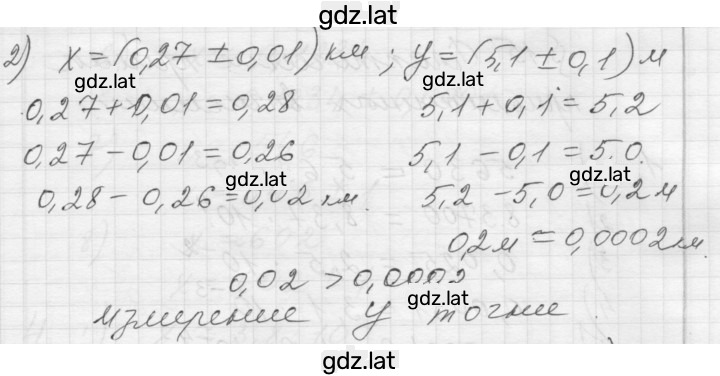 gdz.lat
2) x = (0,27 ± 0,01) км ; y = (5,1 ± 0,1) м
gdz.lat gdz.lat
0,27 + 0,01 = 0,28 5,1 + 0,1 = 5,2
0,27 - 0,01 = 0,26 5,1 - 0,1 = 5.0.
gdz.lat gdz.lat
0,28 - 0,26 = 0,02 км. 5,2 - 5,0 = 0,2 м
0,2 м = 0,0002 км.
0,02 > 0,0002
gdz.lat
измерение y точнее
gdz.lat